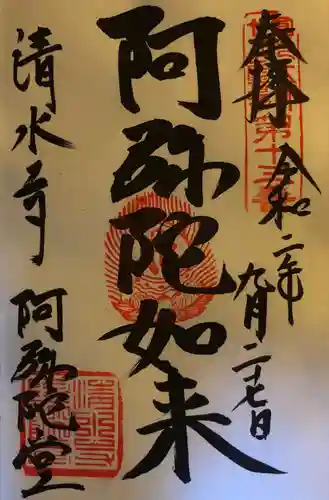 奉拝
令和二年九月二十七日
阿弥陀如来
清水寺
阿弥陀堂